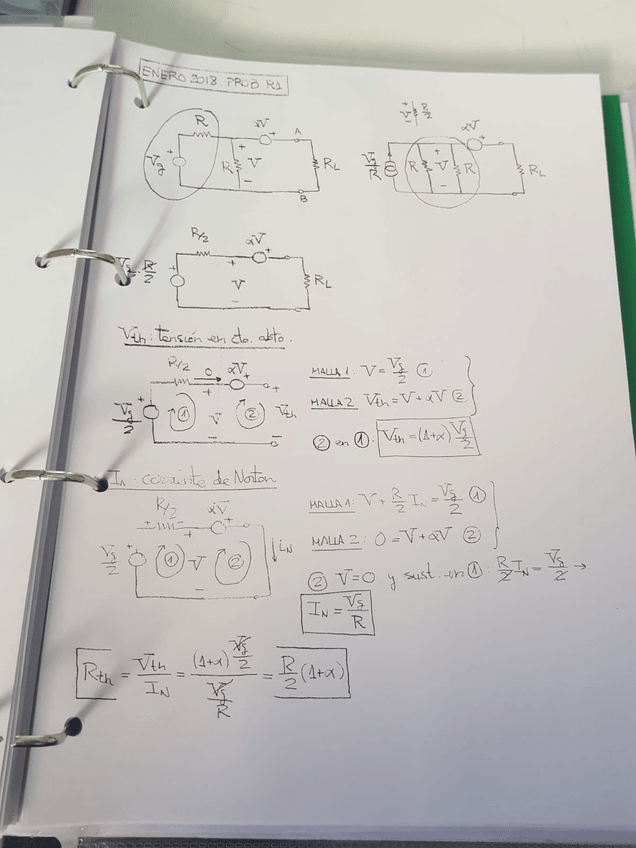 ENERO 2018. PROB R1
R αV A
Vg + R + V - RL
B
+ V - R/2
αV
Vg/R R + V - R RL
R/2 αV
Vg/R · R/2 + V - RL
Vth: tensión en cto. abto.
R/2 0 αV
Vg/2 1 V 2 Vth
MALLA 1: V = Vg/2 ①
MALLA 2: Vth = V + αV ②
② en ①: Vth = (1+α) Vg/2
IN: corriente de Norton
R/2 αV
Vg/2 1 V 2 iN
MALLA 1: V + R/2 IN = Vg/2 ①
MALLA 2: 0 = V + αV ②
② V=0 y sust. en ①: R/2 IN = Vg/2 →
IN = Vg/R
Rth = Vth/IN = (1+α) Vg/2 / Vg/R = R/2 (1+α)